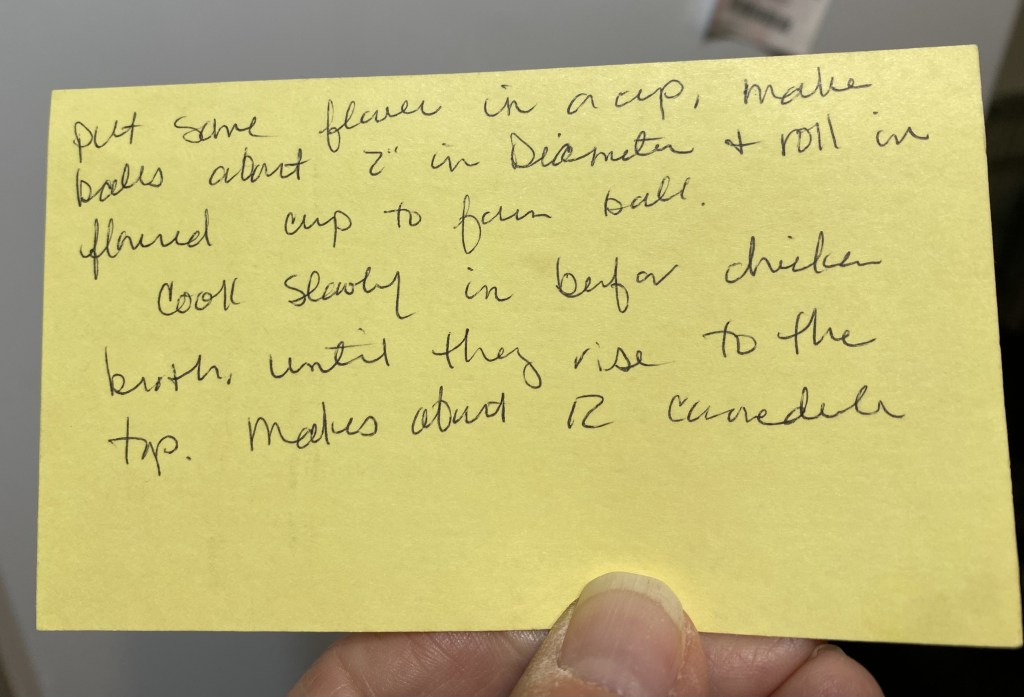 put some flour in a cup, make
balls about 2" in Diameter + roll in
floured cup to form ball.
Cook slowly in beef or chicken
broth, until they rise to the
top. Makes about 12